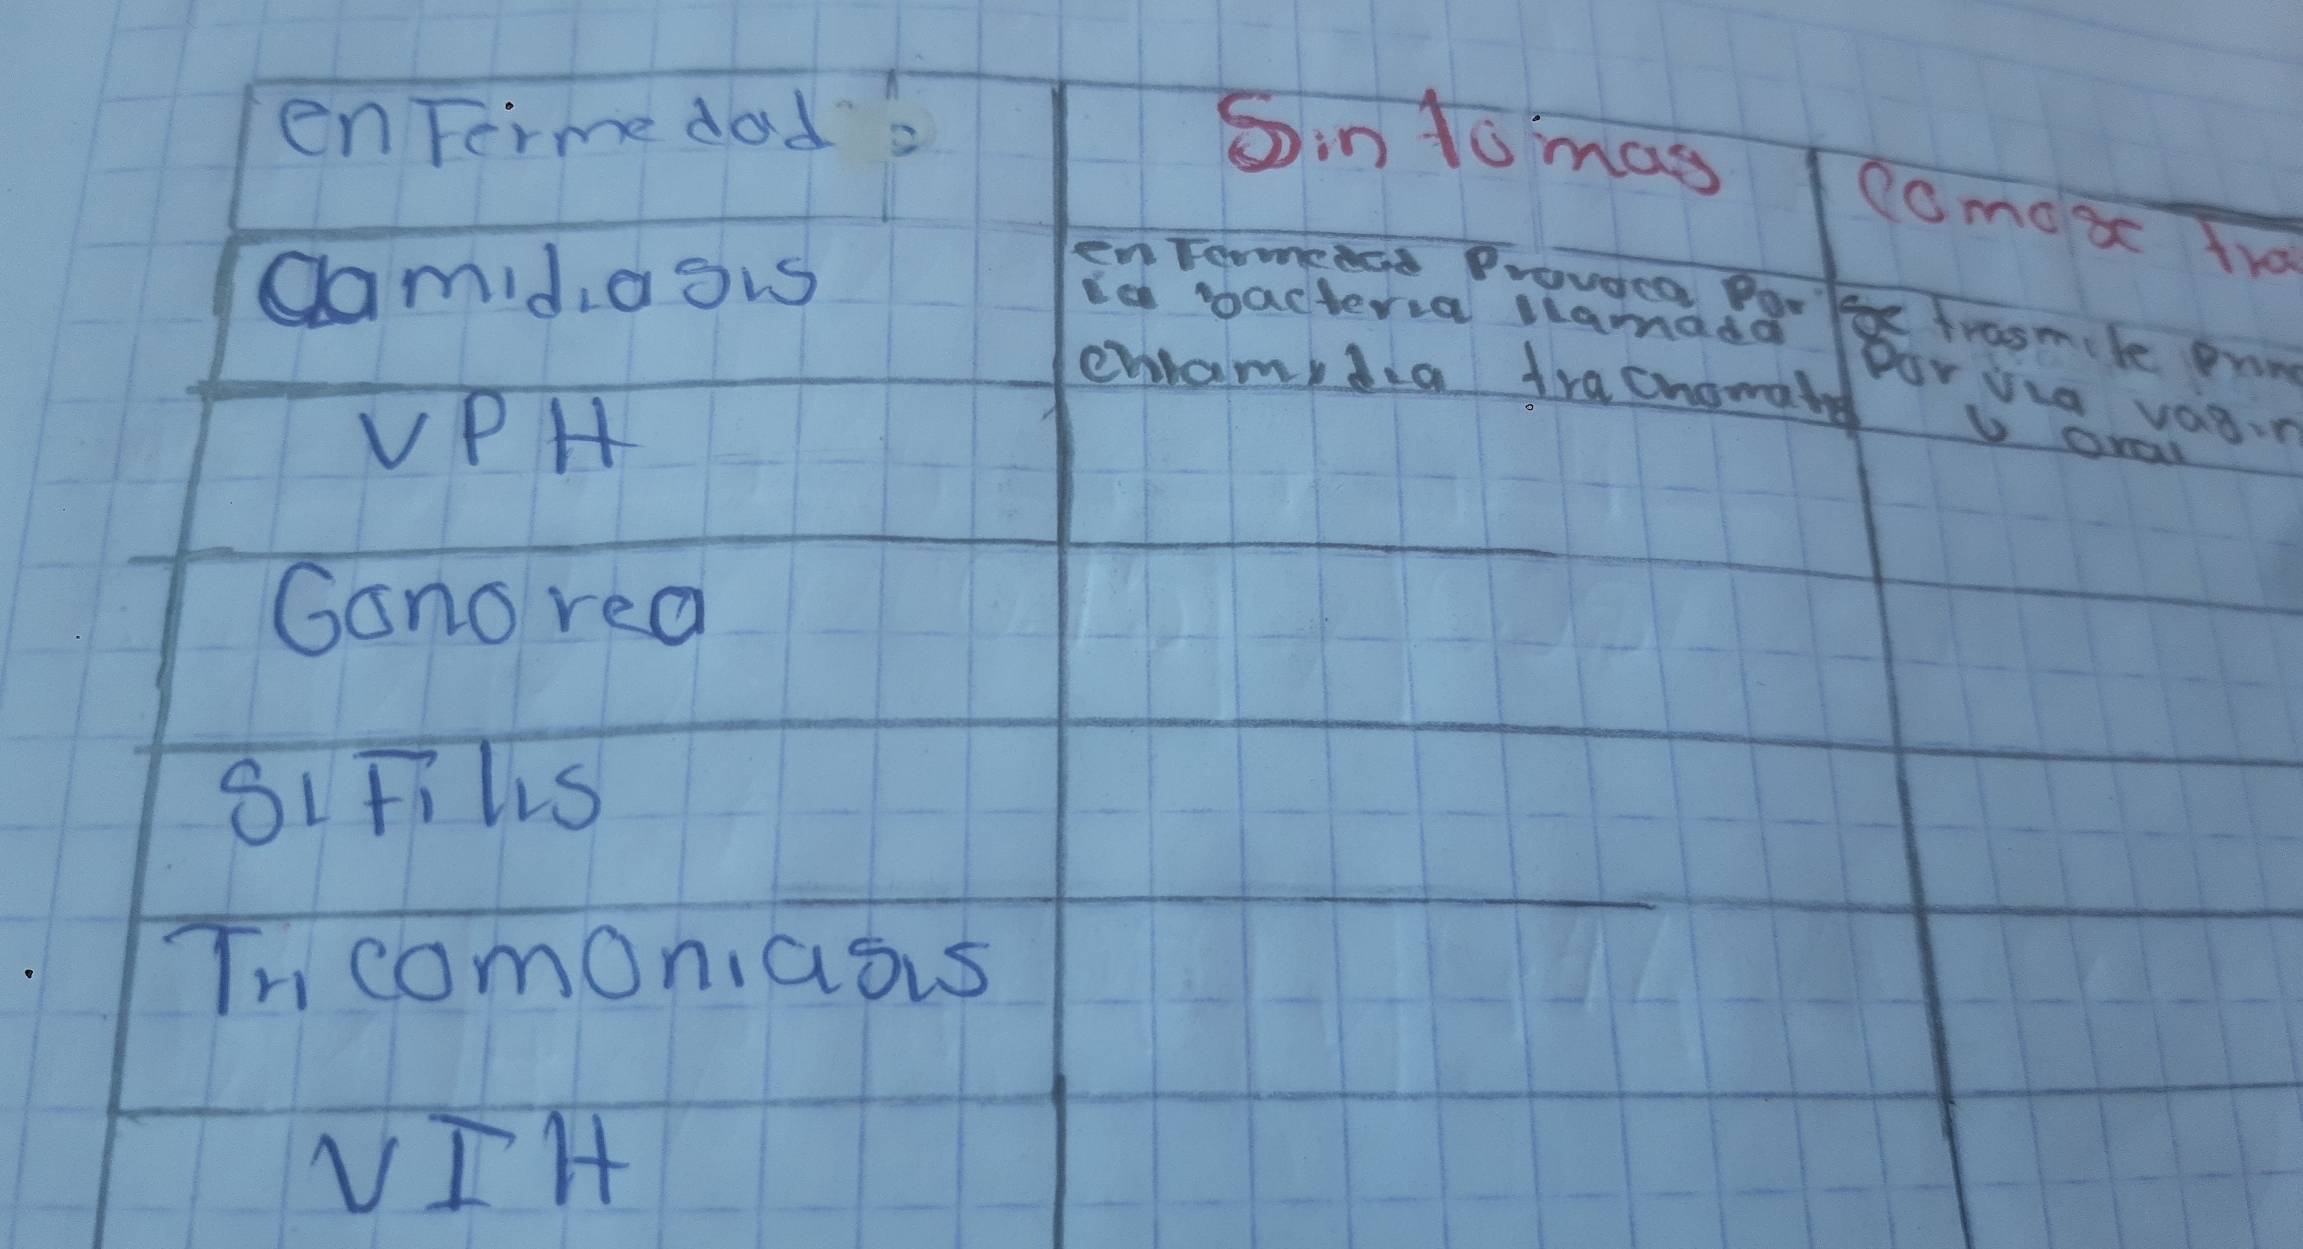 enfermedad:
Sintomas
Como se tra
Clamidiasis
enfermedad Provoca Por
la bacteria llamada
chlamydia trachomatis
Se trasmite
Por via vagin
u oral
VPH
Gonorea
Sifilis
Tricomoniasis
VIH